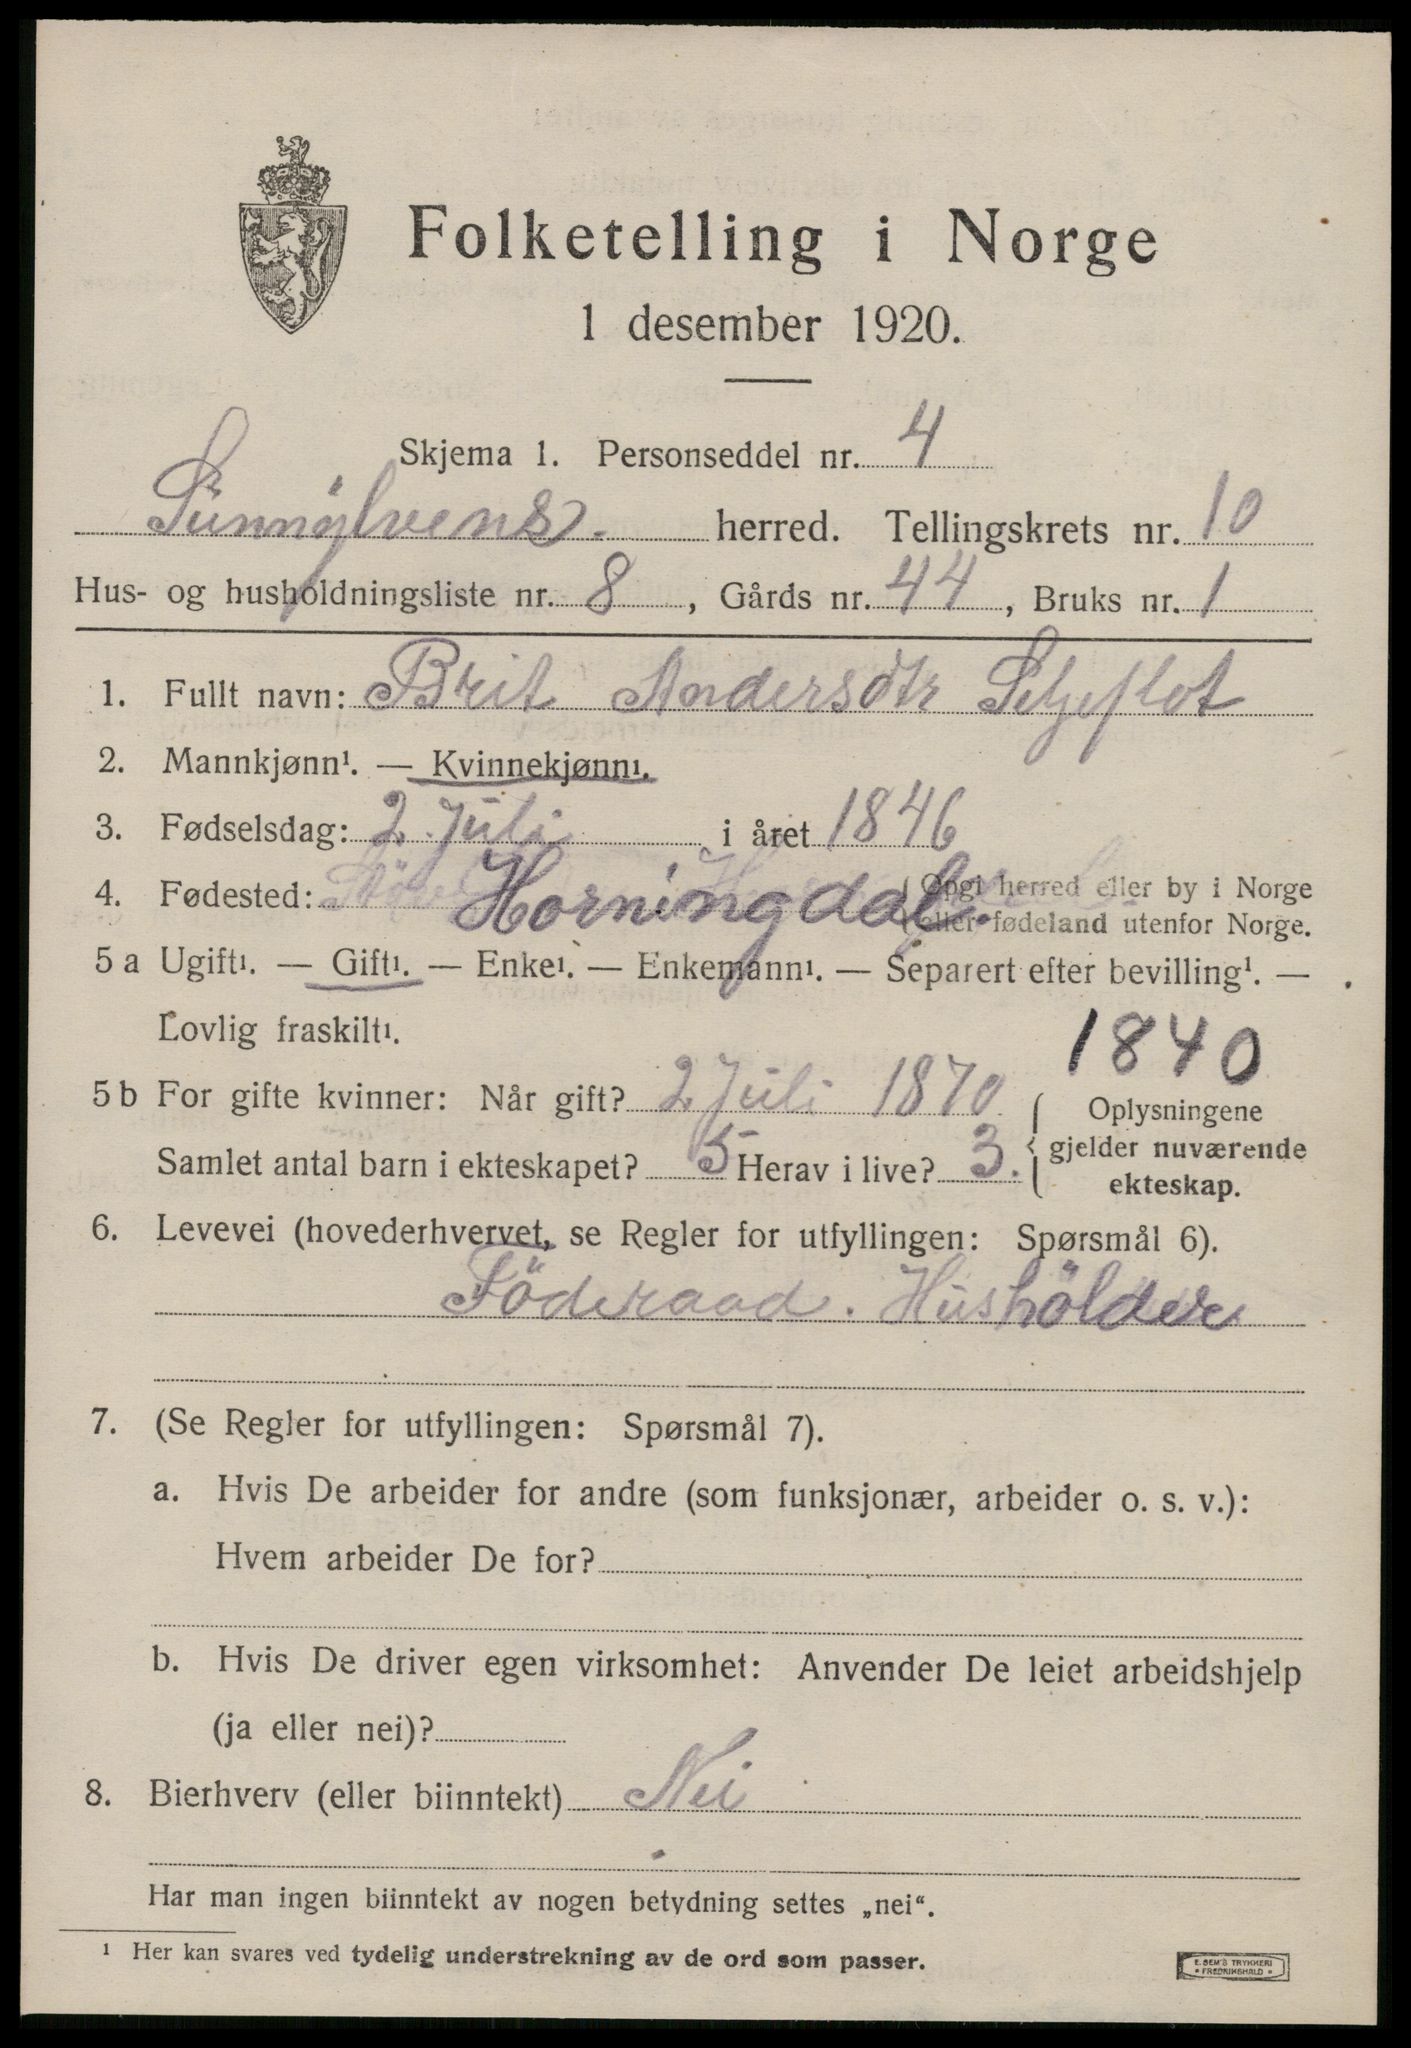 Folketelling i Norge
1 desember 1920.
Skjema 1. Personseddel nr. 4
Sunnylvens herred. Tellingskrets nr. 10
Hus- og husholdningsliste nr. 8, Gårds nr. 44, Bruks nr. 1
1. Fullt navn: Brit Andersdtr Seljeflot
2. Mannkjønn¹. — Kvinnekjønn¹.
3. Fødselsdag: 2 Juli i året 1846
4. Fødested: Horningdal. (Opgi herred eller by i Norge
eller fødeland utenfor Norge.
5 a Ugift¹. — Gift¹. — Enke¹. — Enkemann¹. — Separert efter bevilling¹. —
Lovlig fraskilt¹.
1840
5 b For gifte kvinner: Når gift? 2 Juli 1870
Samlet antal barn i ekteskapet? 5 Herav i live? 3.
Oplysningene
gjelder nuværende
ekteskap.
6. Levevei (hovederhvervet, se Regler for utfyllingen: Spørsmål 6).
Föderaad. Husholder
7. (Se Regler for utfyllingen: Spørsmål 7).
a. Hvis De arbeider for andre (som funksjonær, arbeider o. s. v.):
Hvem arbeider De for?
b. Hvis De driver egen virksomhet: Anvender De leiet arbeidshjelp
(ja eller nei)?
8. Bierhverv (eller biinntekt) Nei
Har man ingen biinntekt av nogen betydning settes „nei“.
¹ Her kan svares ved tydelig understrekning av de ord som passer.
E. SEM'S TRYKKERI
• FREDRIKSHALD •